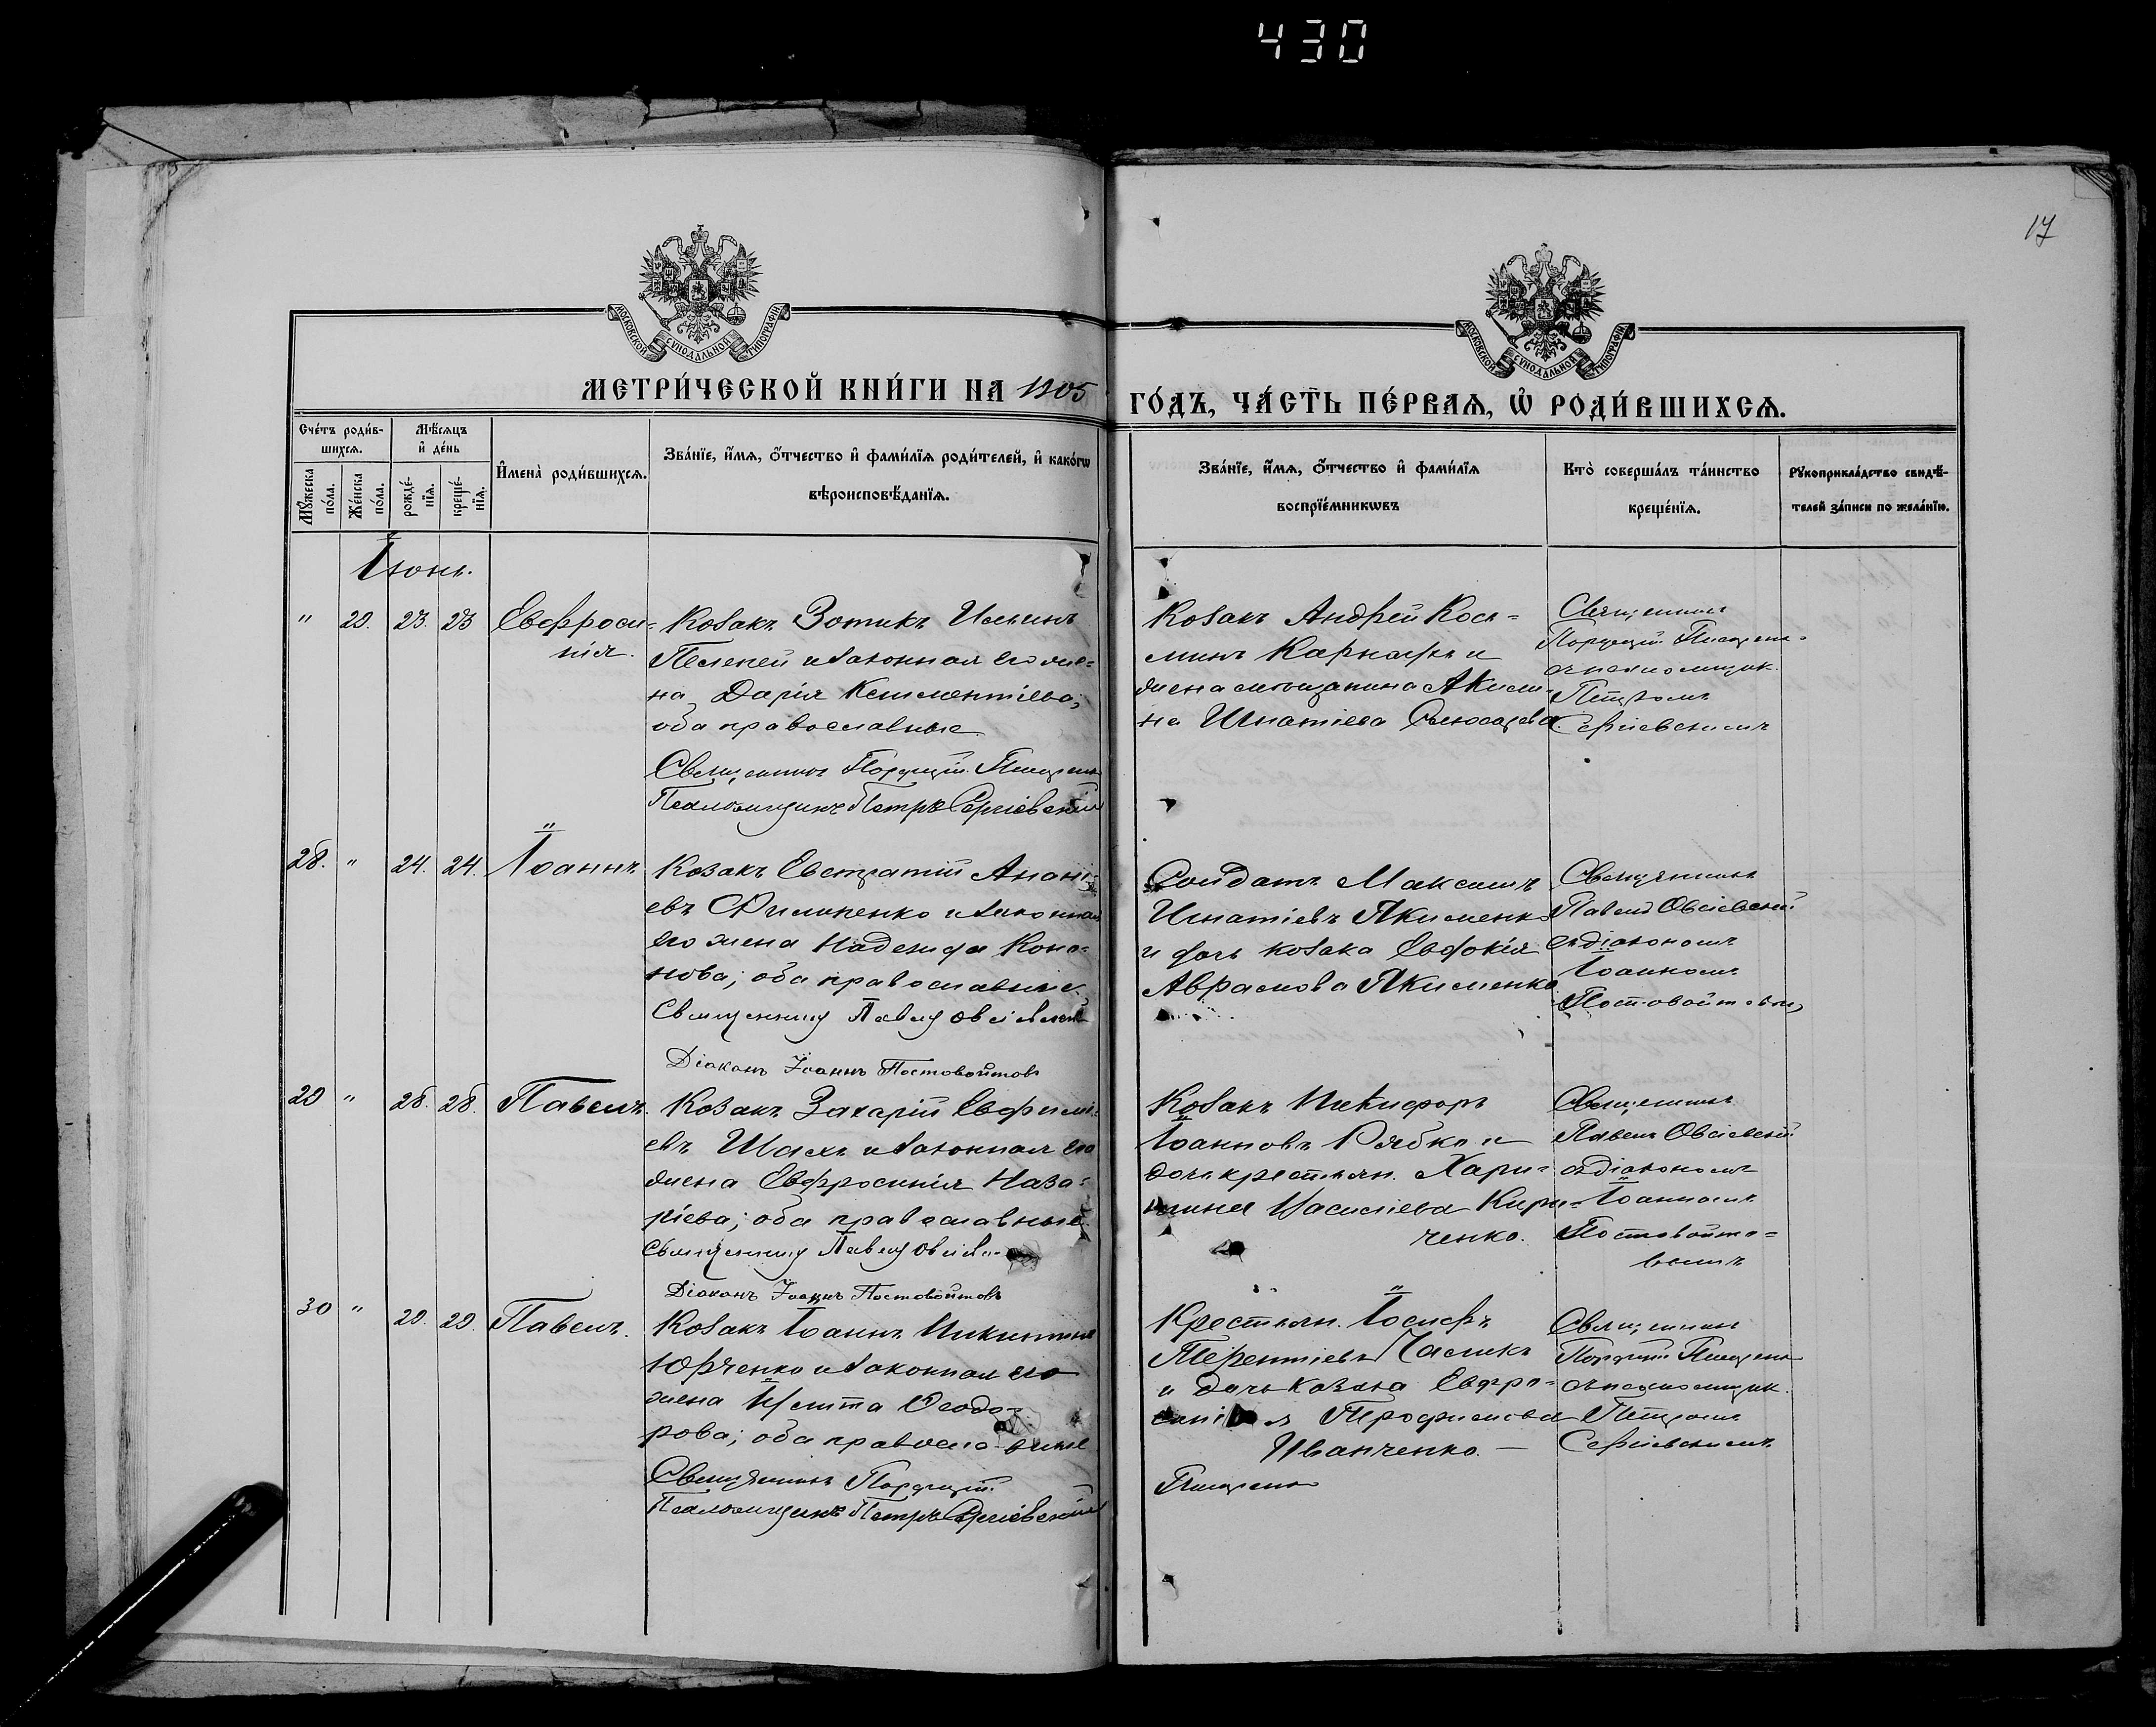 430
17
МОСКОВСКОЙ СѴНОДАЛЬНОЙ ТИПОГРАФІИ
МОСКОВСКОЙ СѴНОДАЛЬНОЙ ТИПОГРАФІИ
МЕТРИ́ЧЕСКОЙ КНИ́ГИ НА 1905
ГО́ДЪ, ЧА́СТЬ ПЕ́РВАѦ, Ѡ҆ РОДИ́ВШИХСѦ.
Сче́тъ роди́в-
шихсѧ.
Мꙋ́жеска по́ла.
Же́нска по́ла.
Мѣ́сѧцъ
и҆ де́нь
рожде́-
нїѧ.
креще́-
нїѧ.
И҆мена̀ роди́вшихсѧ.
Зва́нїе, и҆́мѧ, ѻ҆́тчество и҆ фами́лїѧ роди́телей, и҆ како́гѡ
вѣроисповѣ́данїѧ.
Зва́нїе, и҆́мѧ, ѻ҆́тчество и҆ фами́лїѧ
воспрїе́мникѡвъ
Кто̀ соверша́лъ та́инство
креще́нїѧ.
Рꙋкоприкла́дство свидѣ́-
телей за́писи по жела́нїю.
Іюнь.
" 20. 23. 23 Евфроси-
нія.
Козакъ Зотикъ Ильинъ
и законная его же-
на Дарія Климентіева;
оба православные
Священникъ
Псаломщикъ Петръ Сергіевскій
Козакъ Андрей Кось-
минъ и
жена мѣщанина Акили-
на Игнатіева
Священникъ
съ псаломщик.
Петромъ
Сергіевскимъ
28. " 24. 24. Іоаннъ
Козакъ Евстратій Анані-
евъ Филипенко и законная
его жена Надежда Коно-
нова; оба православные
Священникъ Павелъ
Діаконъ Іоаннъ Постовойтовъ
Солдатъ Максимъ
Игнатіевъ Якименко
и дочь козака Евдокія
Аврамова Якименко
Священникъ
Павелъ Овсіевскій
съ діакономъ
Іоанномъ
29 " 28. 28. Павелъ.
Козакъ Захарій Евфимі-
евъ Шахъ и законная его
жена Евфросинія Наза-
ріева; оба православные.
Священникъ Павелъ
Діаконъ Іоаннъ Постовойтовъ
Козакъ Никифоръ
Іоанновъ Рябко и
дочь крестьян. Хари-
тина Василіева Кири-
ченко.
Священникъ
Павелъ Овсіевскій
съ діакономъ
Іоанномъ
Постовойто-
вымъ
30 " 29. 29. Павелъ.
Козакъ Іоаннъ Никитинъ
Юрченко и законная его
жена Ѳеодо-
рова; оба православные
Священникъ
Псаломщикъ Петръ Сергіевскій
Крестьян. Іосифъ
Терентіевъ
и дочь козака Евфро-
синія Трофимова
Иванченко. —
Священникъ
съ псаломщик.
Петромъ
Сергіевскимъ